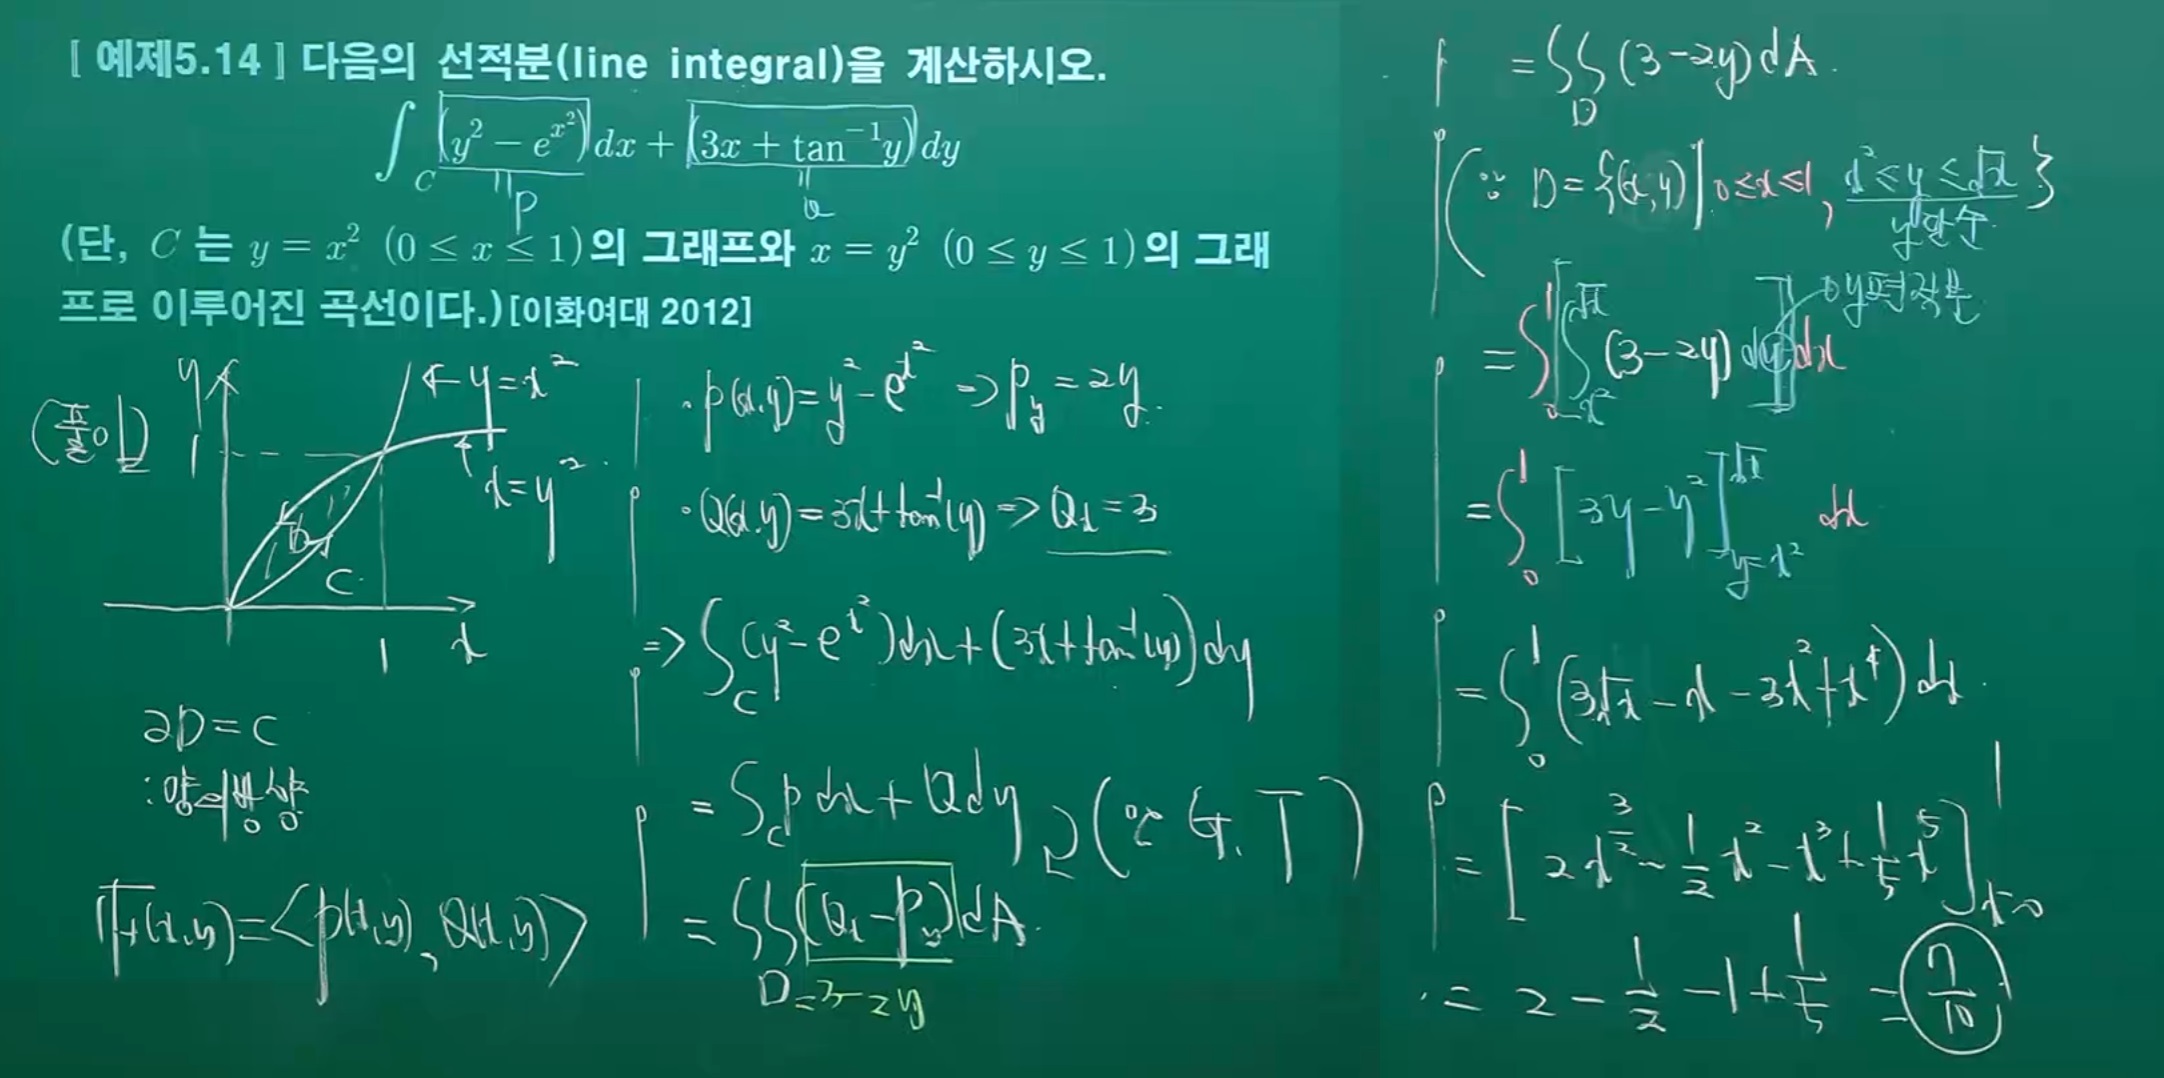 [ 예제5.14 ] 다음의 선적분(line integral)을 계산하시오.
∫_C (y² − e^{x²}) dx + (3x + tan⁻¹y) dy
= P
= Q
(단, C 는 y = x² (0 ≤ x ≤ 1)의 그래프와 x = y² (0 ≤ y ≤ 1)의 그래
프로 이루어진 곡선이다.)[이화여대 2012]
(풀이)
y
← y = x²
1
x = y²
D
C
1
x
∂D = C
: 양의방향
F(x,y) = <P(x,y), Q(x,y)>
· P(x,y) = y² − e^{x²} => P_y = 2y.
· Q(x,y) = 3x + tan⁻¹(y) => Q_x = 3
=> ∫_C (y² − e^{x²}) dx + (3x + tan⁻¹(y)) dy
= ∫_C P dx + Q dy
(∵ G.T)
= ∬_D (Q_x − P_y) dA.
= 3 − 2y
= ∬_D (3 − 2y) dA.
(∵ D = {(x,y) | 0 ≤ x ≤ 1, x² ≤ y ≤ √x}
= ∫_0^1 [ ∫_{x²}^{√x} (3 − 2y) dy ] dx
= ∫_0^1 [3y − y²]_{y=x²}^{√x} dx
= ∫_0^1 (3√x − x − 3x² + x⁴) dx.
= [2x^{3/2} − 1/2 x² − x³ + 1/5 x⁵]_{x=0}^1
= 2 − 1/2 − 1 + 1/5 = 7/10